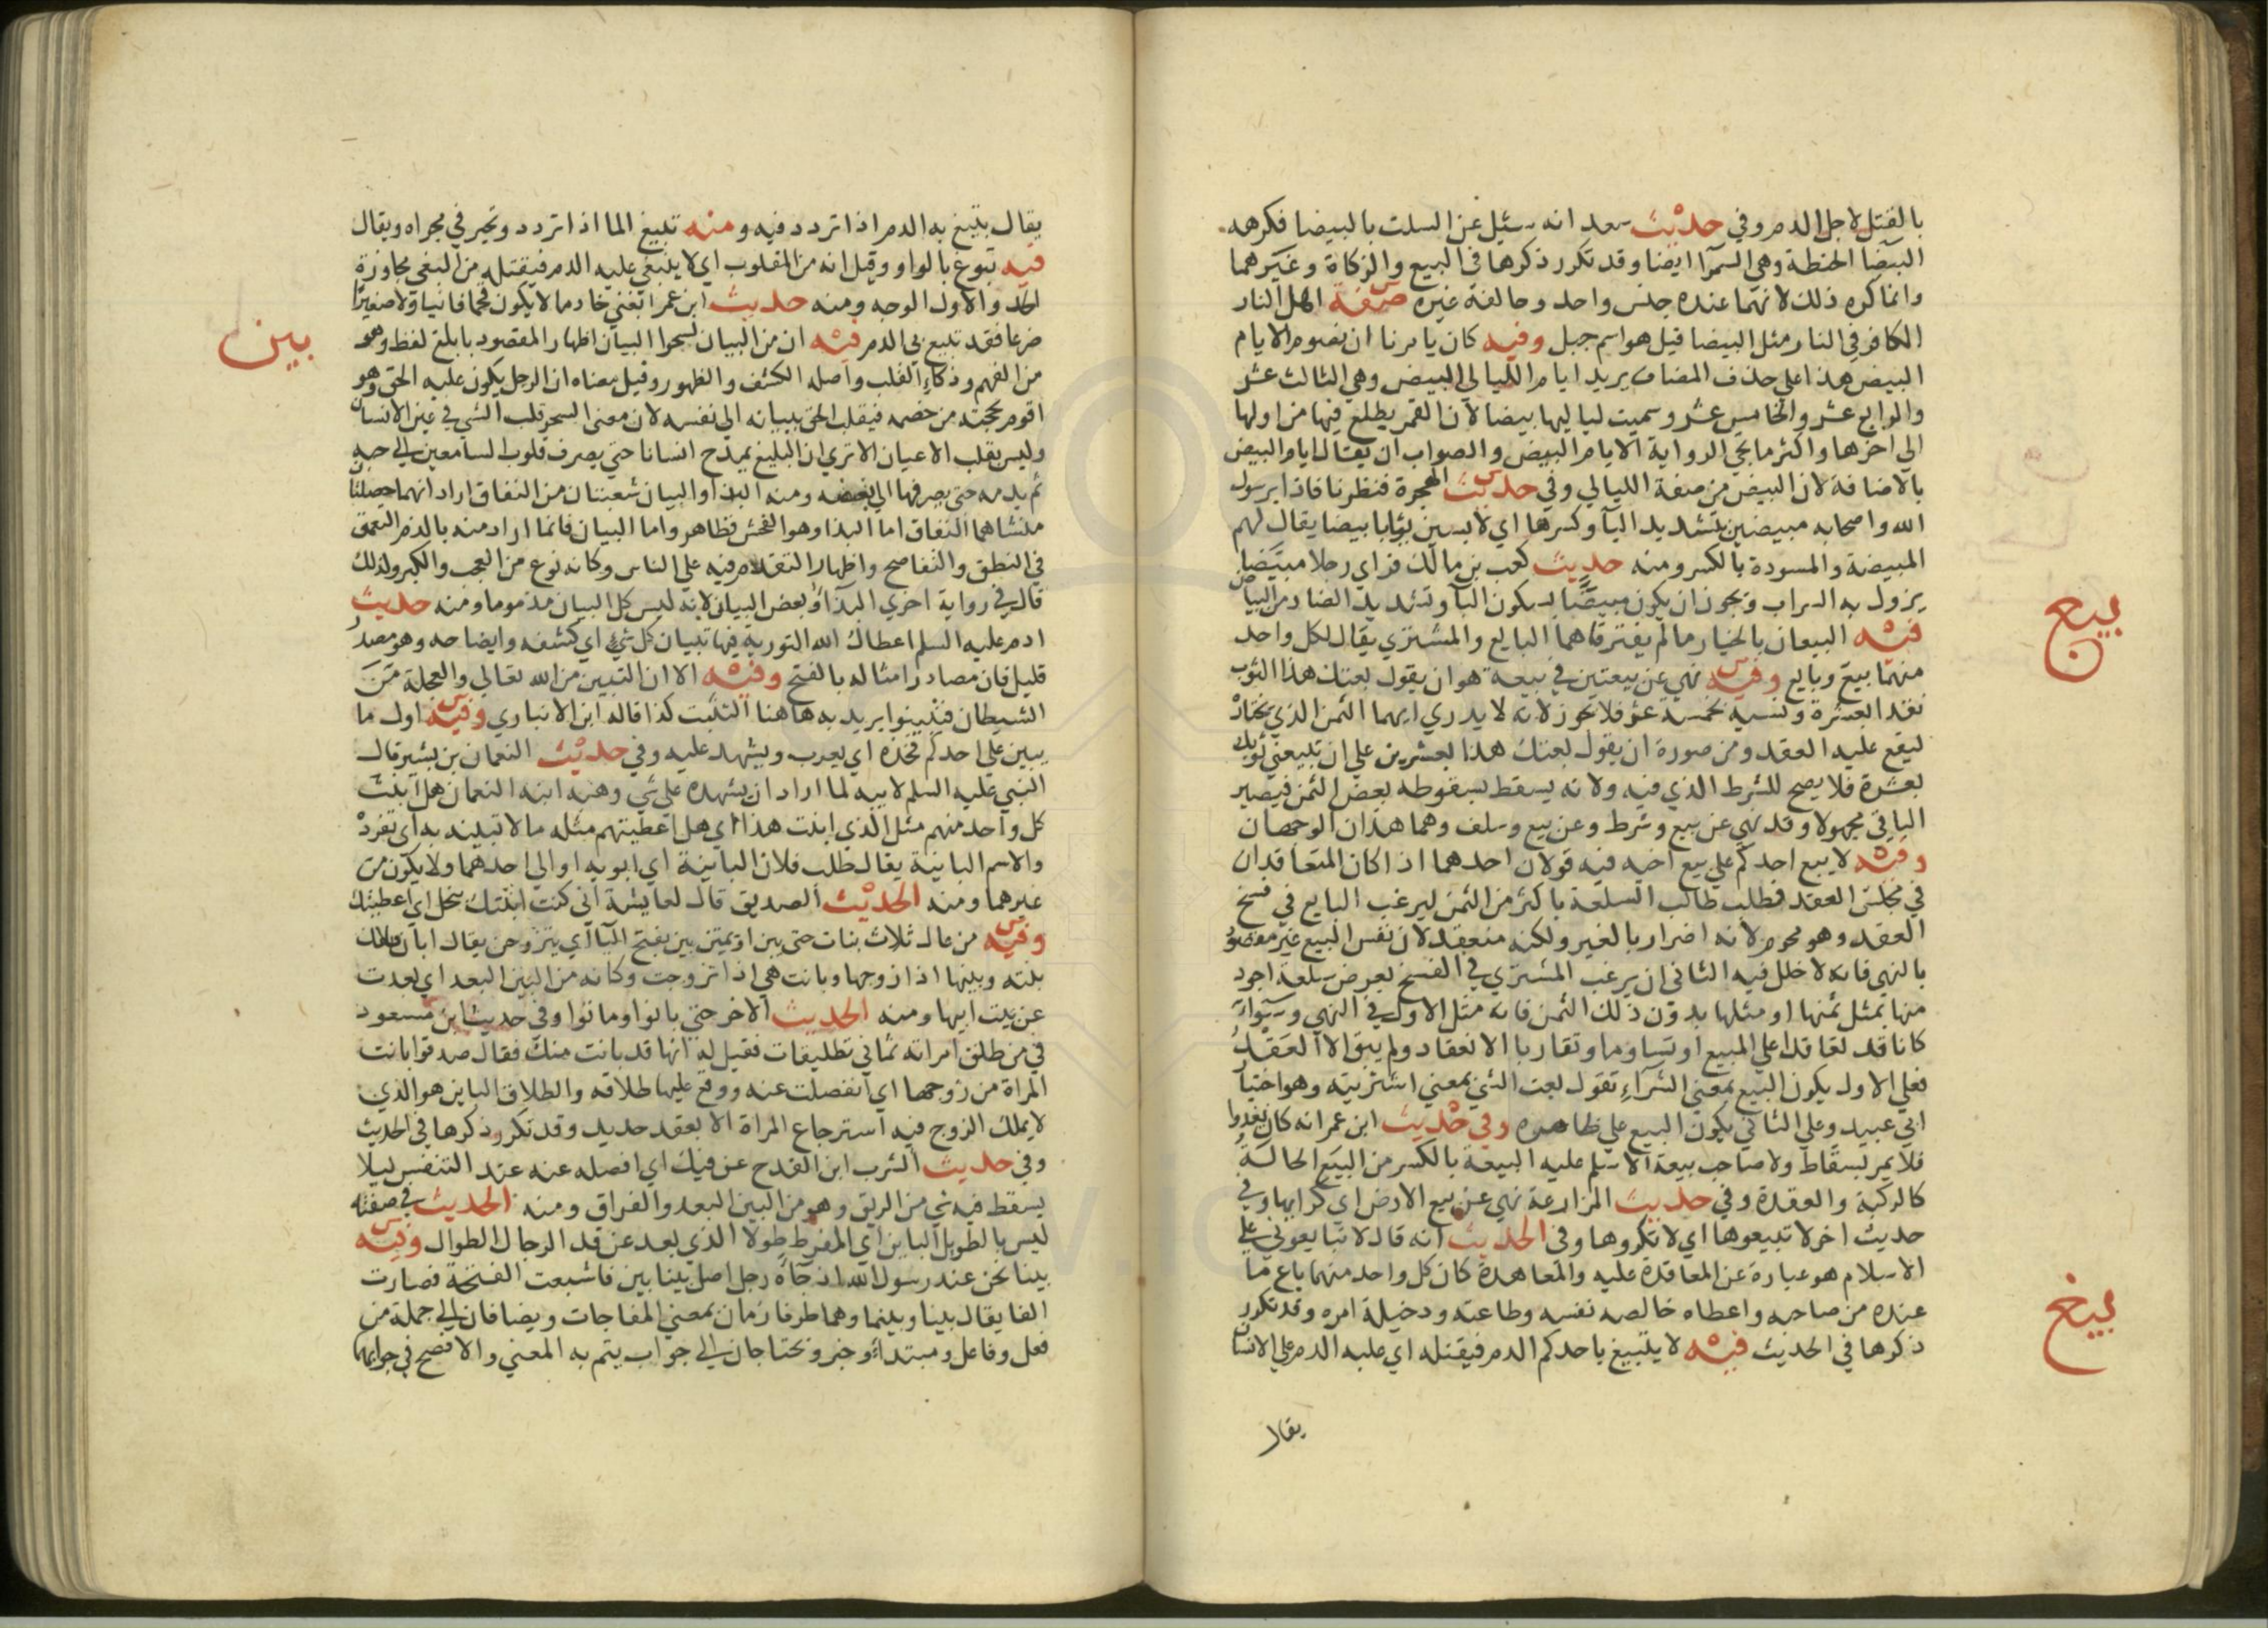 بالقتل لاجل الدم وفي حديث سعد انه سئيل عن السلت بالبيضا فكرهه
البيضا الحنطة وهي السمرا ايضا وقد تكرر ذكرها في البيع والزكاة وغيرهما
وانما كره ذلك لانهما عنده جنس واحد وخالفه غيره صفة اهل النار
الكافر في النار مثل البيضا قيل هو اسم جبل وفيه كان يامرنا ان نصوم الايام
البيض هذا علي حذف المضاف يريد ايام الليالي البيض وهي الثالث عشر
والرابع عشر والخامس عشر وسميت لياليها بيضا لان القمر يطلع فيها من اولها
الي اخرها واكثر ما تجي الرواية الايام البيض والصواب ان يقال ايام البيض
بالاضافة لان البيض من صفة الليالي وفي حديث الهجرة فنظرنا فاذا برسول
الله واصحابه مبيضين بتشديد اليا وكسرها اي لابسين ثيابا بيضا يقال لهم
المبيضة والمسودة بالكسر ومنه حديث كعب بن مالك فراي رجلا مبيضا
يزول به السراب ويجوز ان يكون مبيضا بسكون البا وتشديد الضاد من البياض
بيع
فيه البيعان بالخيار ما لم يفترقا هما البايع والمشتري يقال لكل واحد
منهما بيع وبايع وفيه نهي عن بيعتين في بيعة هو ان يقول بعتك هذا الثوب
نقدا بعشرة ونسية بخمسة عشر فلا يجوز لانه لا يدري ايهما الثمن الذي يختار
ليقع عليه العقد ومن صورة ان يقول بعتك هذا بعشرين علي ان تبيعني ثوبك
بعشرة فلا يصح للشرط الذي فيه ولانه يسقط بسقوطه بعض الثمن فيصير
الباقي مجهولا وقد نهي عن بيع وشرط وعن بيع وسلف وهما هذان الوجهان
وفيه لا يبع احدكم علي بيع اخيه فيه قولان احدهما اذا كان المتعاقدان
في مجلس العقد فطلب طالب السلعة باكثر من الثمن ليرغب البايع في فسخ
العقد وهو محرم لانه اضرار بالغير ولكنه منعقد لان نفس البيع غير مقصود
بالنهي فانه لا خلل فيه الثاني ان يرغب المشتري في الفسخ بعرض سلعة اجود
منها بمثل ثمنها او مثلها بدون ذلك الثمن فانه مثل الاول في النهي وسواء
كانا قد تعاقدا علي المبيع او تساوما وتقاربا الانعقاد ولم يبق الا العقد
فعلي الاول يكون البيع بمعني الشراء تقول بعت الشي بمعني اشتريته وهو اختيار
ابي عبيد وعلي الثاني يكون البيع علي ظاهره وفي حديث ابن عمر انه كان يغدوا
فلا يمر بسقاط ولا صاحب بيعة الا سلم عليه البيعة بالكسر من البيع الحالة
كالركبة والعقدة وفي حديث المزارعة نهي عن بيع الارض اي كرايها وفي
حديث اخر لا تبيعوها اي لا تكروها وفي الحديث انه قال لا تبايعوني علي
الاسلام هو عبارة عن المعاقدة عليه والمعاهدة كان كل واحد منهما باع ما
عنده من صاحبه واعطاه خالصه نفسه وطاعته ودخيلة امره وقد تكرر
بيغ
ذكرها في الحديث فيه لا يتبيغ باحدكم الدم فيقتله اي غلبه الدم علي الانسان
يقال
يقال بتبيغ به الدم اذا تردد فيه ومنه تبيغ الما اذا تردد وتحير في مجراه ويقال
فيه تبوغ بالواو وقيل انه من المقلوب اي لا يبغي عليه الدم فيقتله من البغي مجاوزة
الحد والاول الوجه ومنه حديث ابن عمر ابغني خادما لا يكون قحما فانيا ولا صغيرا
ضرعا فقد تبيع بي الدم فيه ان من البيان لسحرا البيان اظهار المقصود بابلغ لفظ وهو
بين
من الفهم وذكاء القلب واصله الكشف والظهور وقيل معناه ان الرجل يكون عليه الحق وهو
اقوم بحجته من خصمه فيقلب الحق ببيانه الي نفسه لان معنى السحر قلب الشي في عين الانسان
وليس بقلب الاعيان الا تري ان البليغ يمدح انسانا حتي يصرف قلوب السامعين الي حبه
ثم يذمه حتي يصرفها الي بغضه ومنه البذا والبيان شعبتان من النفاق اراد انهما خصلتان
منشاهما النفاق اما البذا وهو الفحش فظاهر واما البيان فانما اراد منه بالذم التعمق
في النطق والتفاصح واظهار التقدم فيه علي الناس وكانه نوع من العجب والكبر ولذلك
قال في رواية اخري البذا وبعض البيان لانه ليس كل البيان مذموما ومنه حديث
ادم عليه السلم اعطاك الله التورية فيها تبيان كل شي اي كشفه وايضاحه وهو مصدر
قليل فان مصادر امثاله بالفتح وفيه الا ان التبين من الله تعالي والعجلة من
الشيطان فتبينوا يريد به هاهنا التثبت كذا قاله ابن الانباري وفيه اول ما
يبين علي احدكم فخذه اي يعرب ويشهد عليه وفي حديث النعمان بن بشير قال
النبي عليه السلم لابيه لما اراد ان يشهده علي شي وهبه ابنه النعمان هل ابنت
كل واحد منهم مثل الذي ابنت هذا اي هل اعطيتهم مثله مالا تبينه به اي تفرد
والاسم الباينة يقال طلب فلان الباينة اي ابويه او الي احدهما ولا يكون من
غيرهما ومنه الحديث الصديق قال لعايشة اني كنت ابنتك بنحل اي اعطيتك
وفيه من عال ثلاث بنات حتي يبن او يمتن يبن بفتح اليا اي يتزوجن يقال ابان فلان
بنته وبينها اذا زوجها وبانت هي اذا تزوجت وكانه من البين البعد اي بعدت
عن بيت ابيها ومنه الحديث الاخر حتي بانوا وماتوا وفي حديث ابن مسعود
في من طلق امراته ثماني تطليقات فقيل له انها قد بانت منك فقال صدقوا بانت
المراة من زوجها اي انفصلت عنه ووقع عليها طلاقه والطلاق الباين هو الذي
لا يملك الزوج فيه استرجاع المراة الا بعقد جديد وقد تكرر ذكرها في الحديث
وفي حديث الشرب ابن القدح عن فيك اي افصله عنه عند التنفس ليلا
يسقط فيه شي من الريق وهو من البين البعد والفراق ومنه الحديث في صفته
ليس بالطويل الباين اي المفرط طولا الذي بعد عن قد الرجال الطوال وفيه
بينا نحن عند رسول الله اذ جاه رجل اصل بينا بين فاشبعت الفتحة فصارت
الفا يقال بينا وبينما وهما ظرفا زمان بمعني المفاجات ويضافان الي جملة من
فعل وفاعل ومبتداء وخبر ويحتاجان الي جواب يتم به المعني والافصح في جوابهما